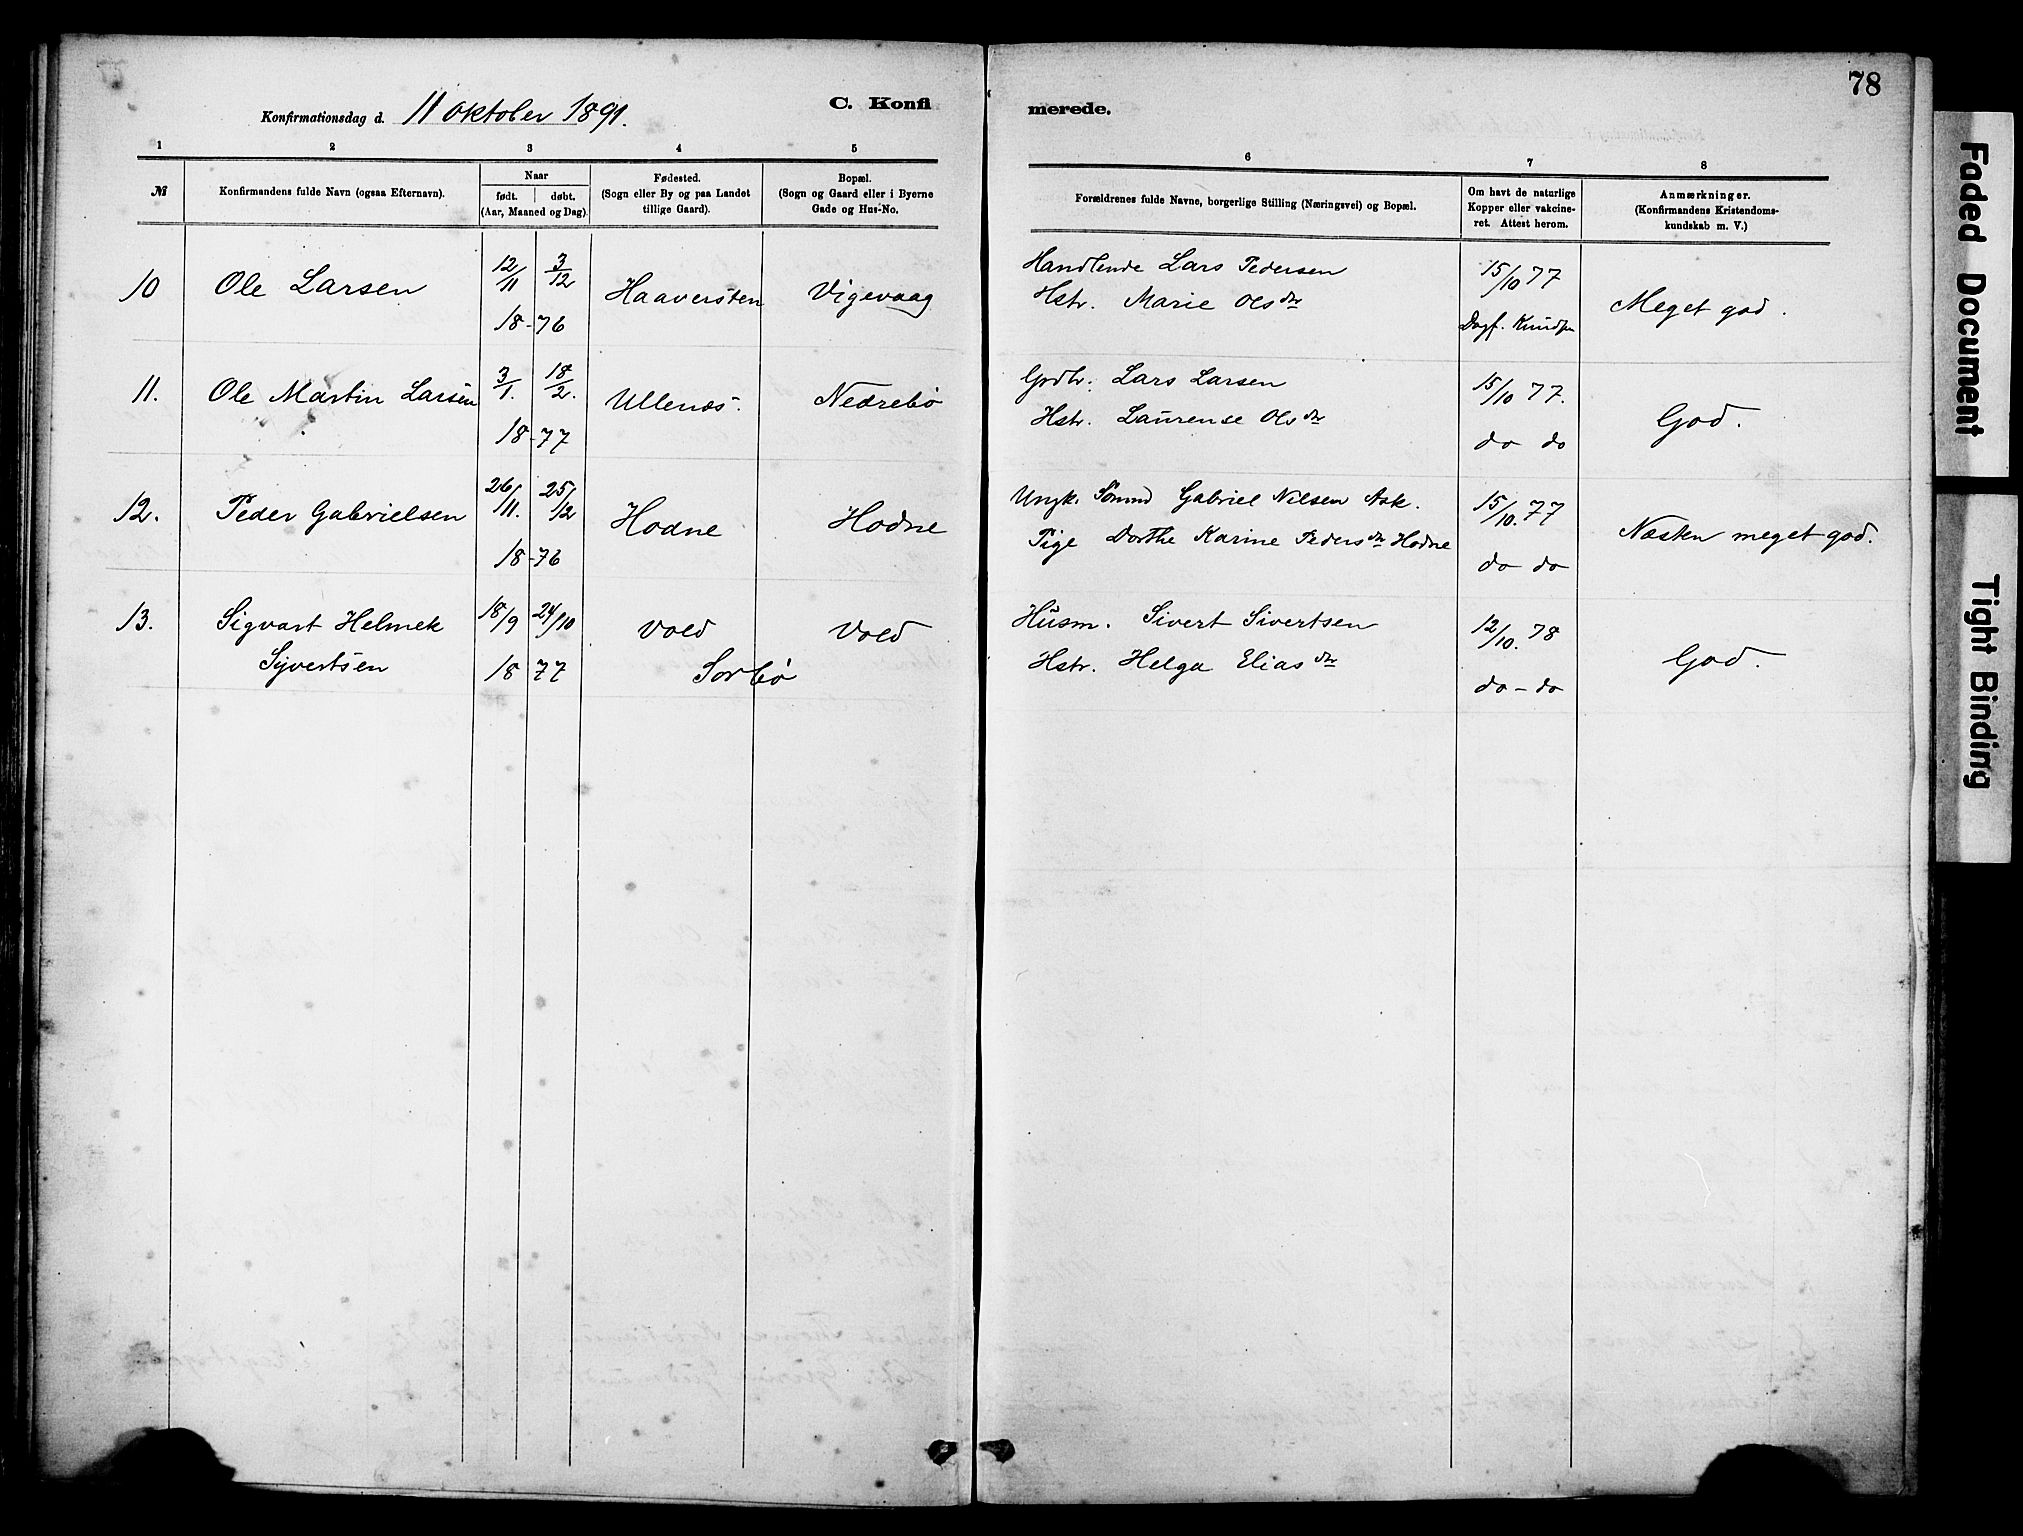 78
Konfirmationsdag d. 11 Oktober 1891.
C. Konfi
merede.
1 2 3 4 5 6 7 8
№
Konfirmandens fulde Navn (ogsaa Efternavn).
Naar
født. døbt.
(Aar, Maaned og Dag).
Fødested.
(Sogn eller By og paa Landet
tillige Gaard).
Bopæl.
(Sogn og Gaard eller i Byerne
Gade og Hus-No.
Forældrenes fulde Navne, borgerlige Stilling (Næringsvei) og Bopæl.
Om havt de naturlige
Kopper eller vakcine-
ret. Attest herom.
Anmærkninger.
(Konfirmandens Kristendoms-
kundskab m. V.)
10 Ole Larsen 12/11 3/12 Haaversten Vigevaag Handlende Lars Pedersen 15/10 77 Meget god.
18-76 Hstr. Marie Olsdtr Dagf. Knudsen
11. Ole Martin Larsen 3/1. 18/2. Ullenæs. Nedrebö Grdbr. Lars Larsen 15/10 77. God.
18-77 Hstr. Laurense Olsdtr do do
12. Peder Gabrielsen 26/11. 25/12 Hodne Hodne Ungk. Sömnd Gabriel Nilsen Ask. 15/10. 77 Næsten meget god.
18-76 Pige Dorthe Karine Pedersdtr Hodne do do
13. Sigvart Helmek 18/9 24/10 Vold Vold Husm. Sivert Sivertsen 12/10. 78 God.
Syvertsen 18 77 Sorbö Hstr. Helga Eliasdtr do - do
Faded Document
Tight Binding